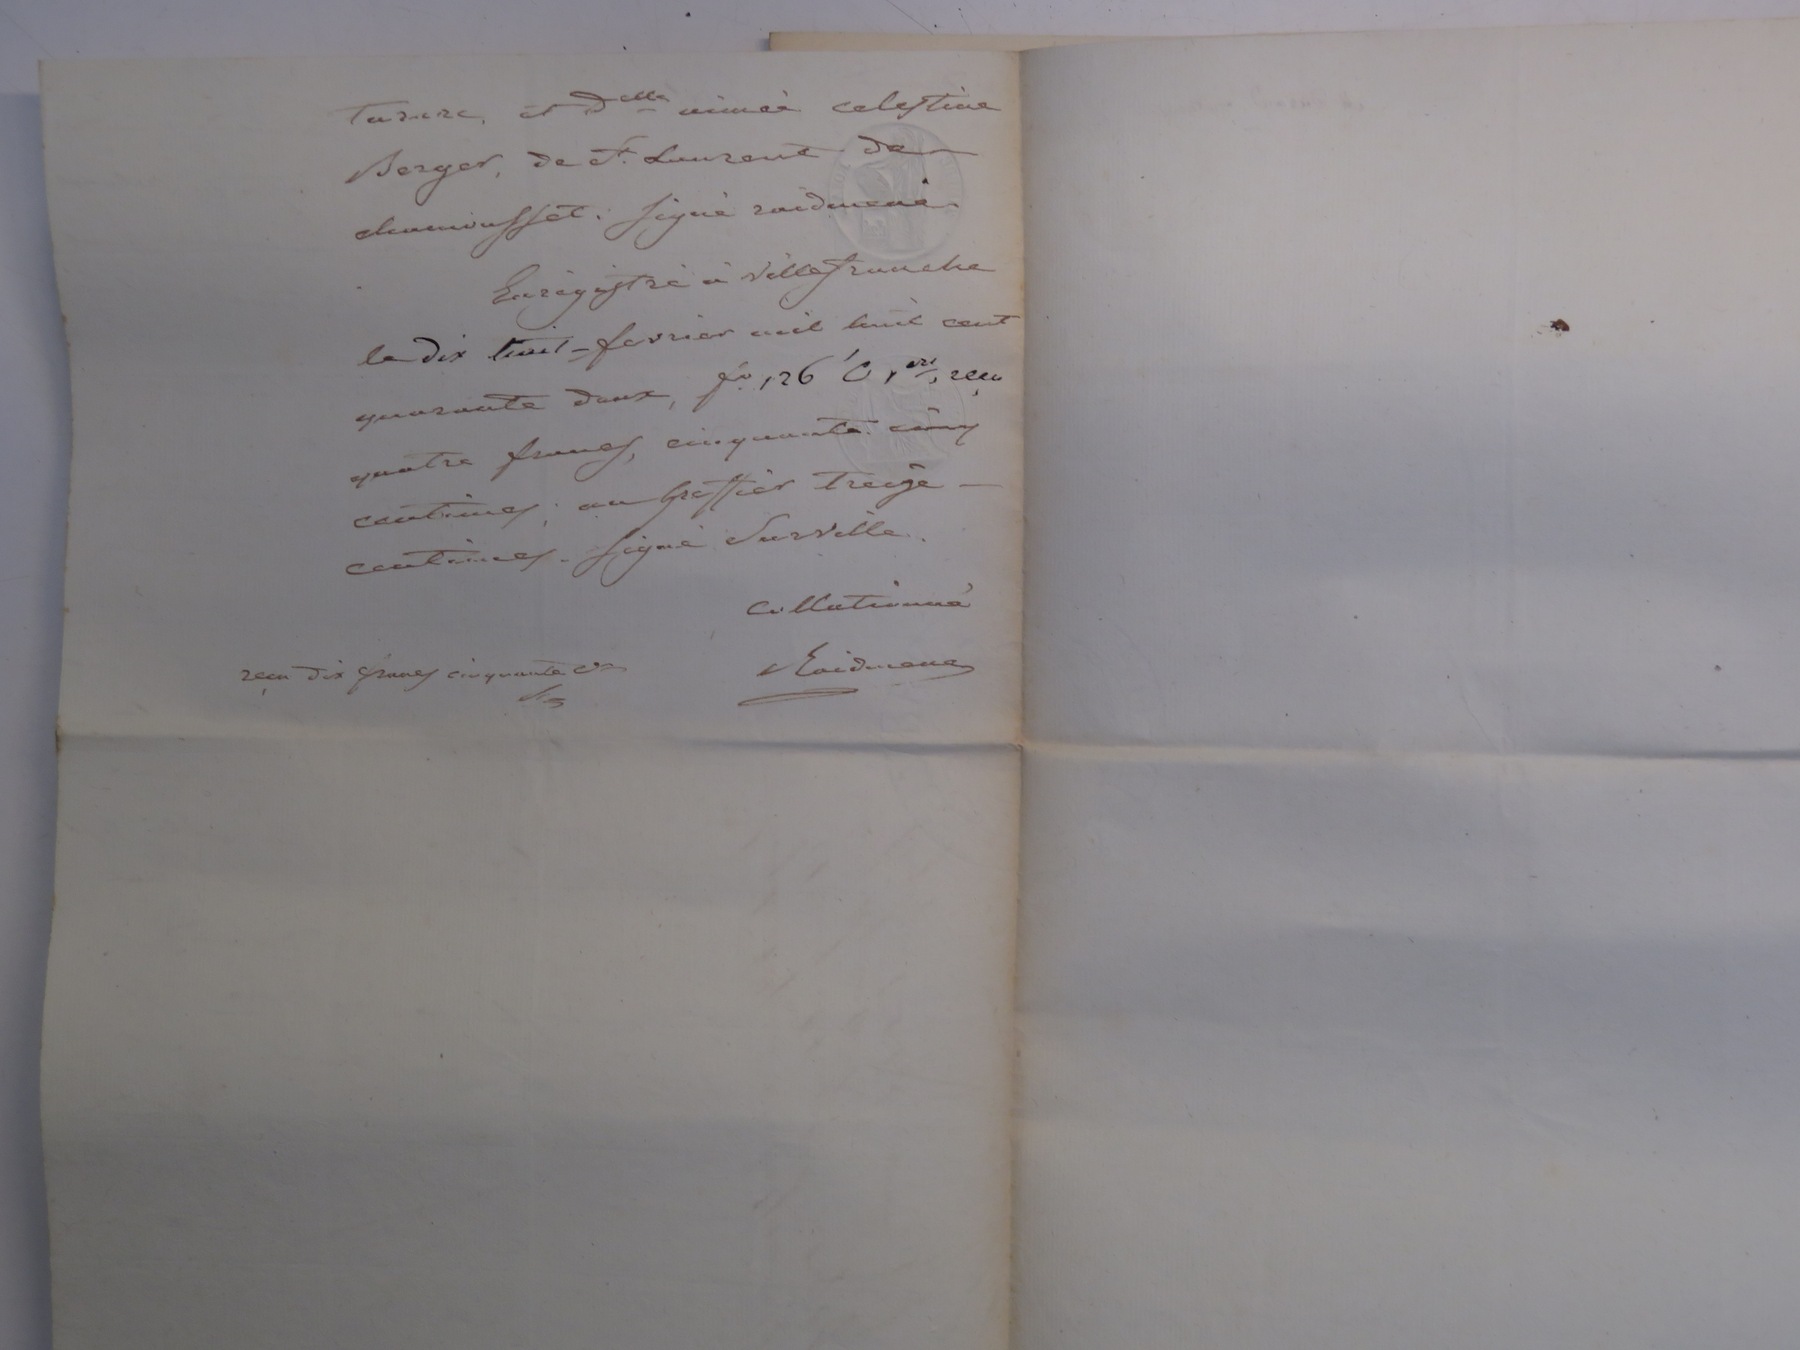 Tarare, et D<sup>elle</sup> aimée celestine
Berger, de St. Laurent de
chamousset. signé raidmené
Enrégistré à villefranche
le dix huit fevrier mil huit cent
quarante deux, fo. 126 C 1 er, reçu
quatre francs, cinquante cinq
centimes; au greffier treize
centimes. signé Surville.
collationné
reçu dix francs cinquante